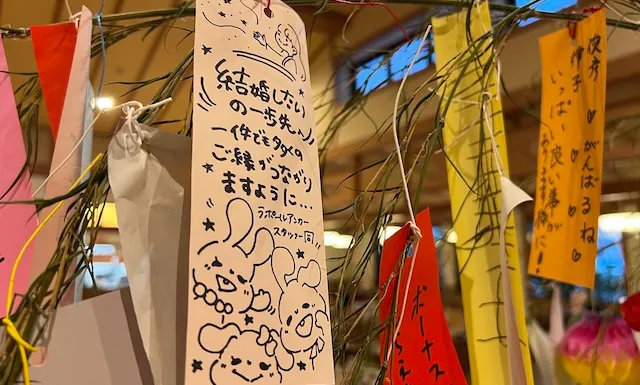 結婚したい
の一歩先へ
一件でも多くの
ご縁がつながり
ますように...
ラポールアンカー
スタッフ一同
ボーナス
彼方 ♥ がんばるね
律子
いっぱい良い事が
ありますように!